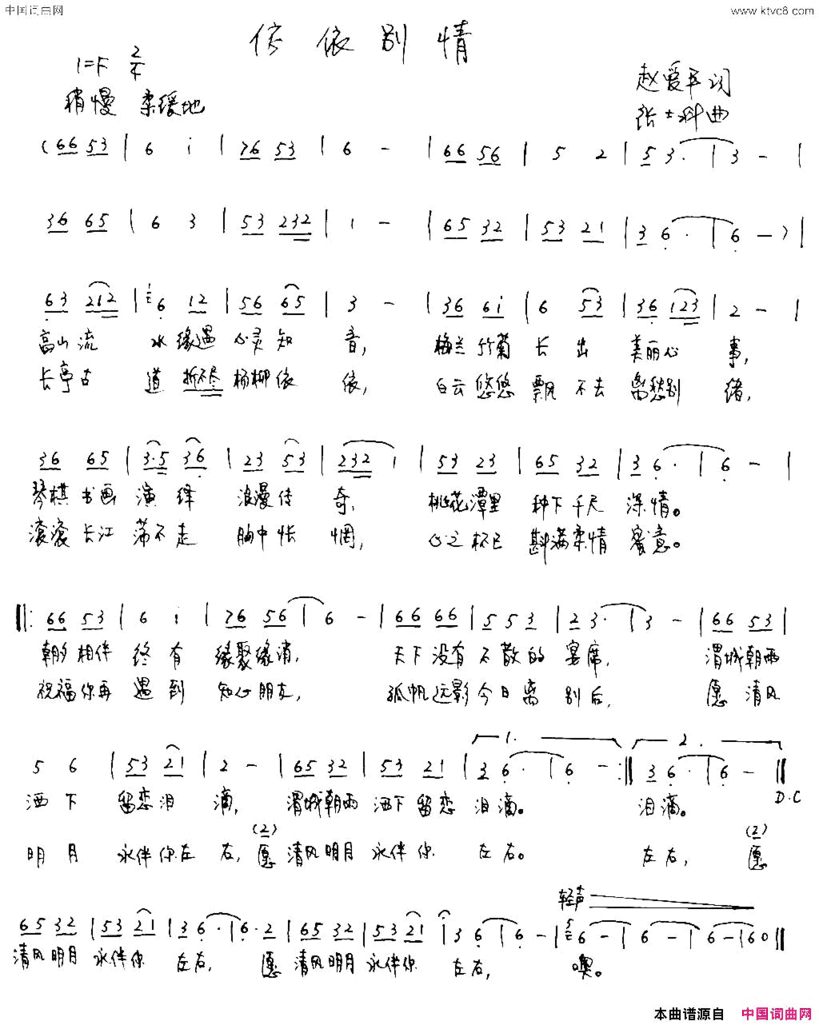 中国词曲网
www.ktvc8.com
依依别情
1=F 2/4
赵爱平词
稍慢 柔缓地
张士科曲
(66 53 | 6 i | 76 53 | 6 - | 66 56 | 5 2 | 53· | 3 - |
36 65 | 6 3 | 53 232 | 1 - | 65 32 | 53 21 | 36· | 6 -) |
63 212 | 6 12 | 56 65 | 3 - | 36 6i | 6 53 | 36 123 | 2 - |
高山流 水缘遇 心灵知 音, 梅兰竹菊 长出 美丽心 事,
长亭古 道折不尽 杨柳依 依, 白云悠悠 飘不去 离愁别 绪,
36 65 | 3·5 36 | 23 53 | 232 1 | 53 23 | 65 32 | 36· | 6 - |
琴棋书画 演绎 浪漫传 奇, 桃花潭里 种下千尺 深情。
滚滚长江 荡不走 胸中怅 惘, 心之杯已 斟满柔情 蜜意。
‖: 66 53 | 6 i | 76 56 | 6 - | 66 66 | 55 3 | 23· | 3 - | 66 53 |
朝夕相伴 终有 缘聚缘消, 天下没有 不散的 宴席, 渭城朝雨
祝福你再 遇到 知心朋友, 孤帆远影今日离 别后, 愿清风
1. 2.
5 6 | 53 21 | 2 - | 65 32 | 53 21 | 36· | 6 - :‖ 36· | 6 - ‖
D.C
洒下 留恋泪 滴, 渭城朝雨 洒下留恋 泪滴。 泪滴。
(2) (2)
明月 永伴你左 右, 愿 清风明月 永伴你 左右。 左右, 愿
轻声
65 32 | 53 21 | 36· | 6·2 | 65 32 | 53 21 | 36· | 6 - | 6 - | 6 - | 6 - | 60 ‖
清风明月 永伴你 左右, 愿 清风明月 永伴你 左右, 噢。
本曲谱源自 中国词曲网